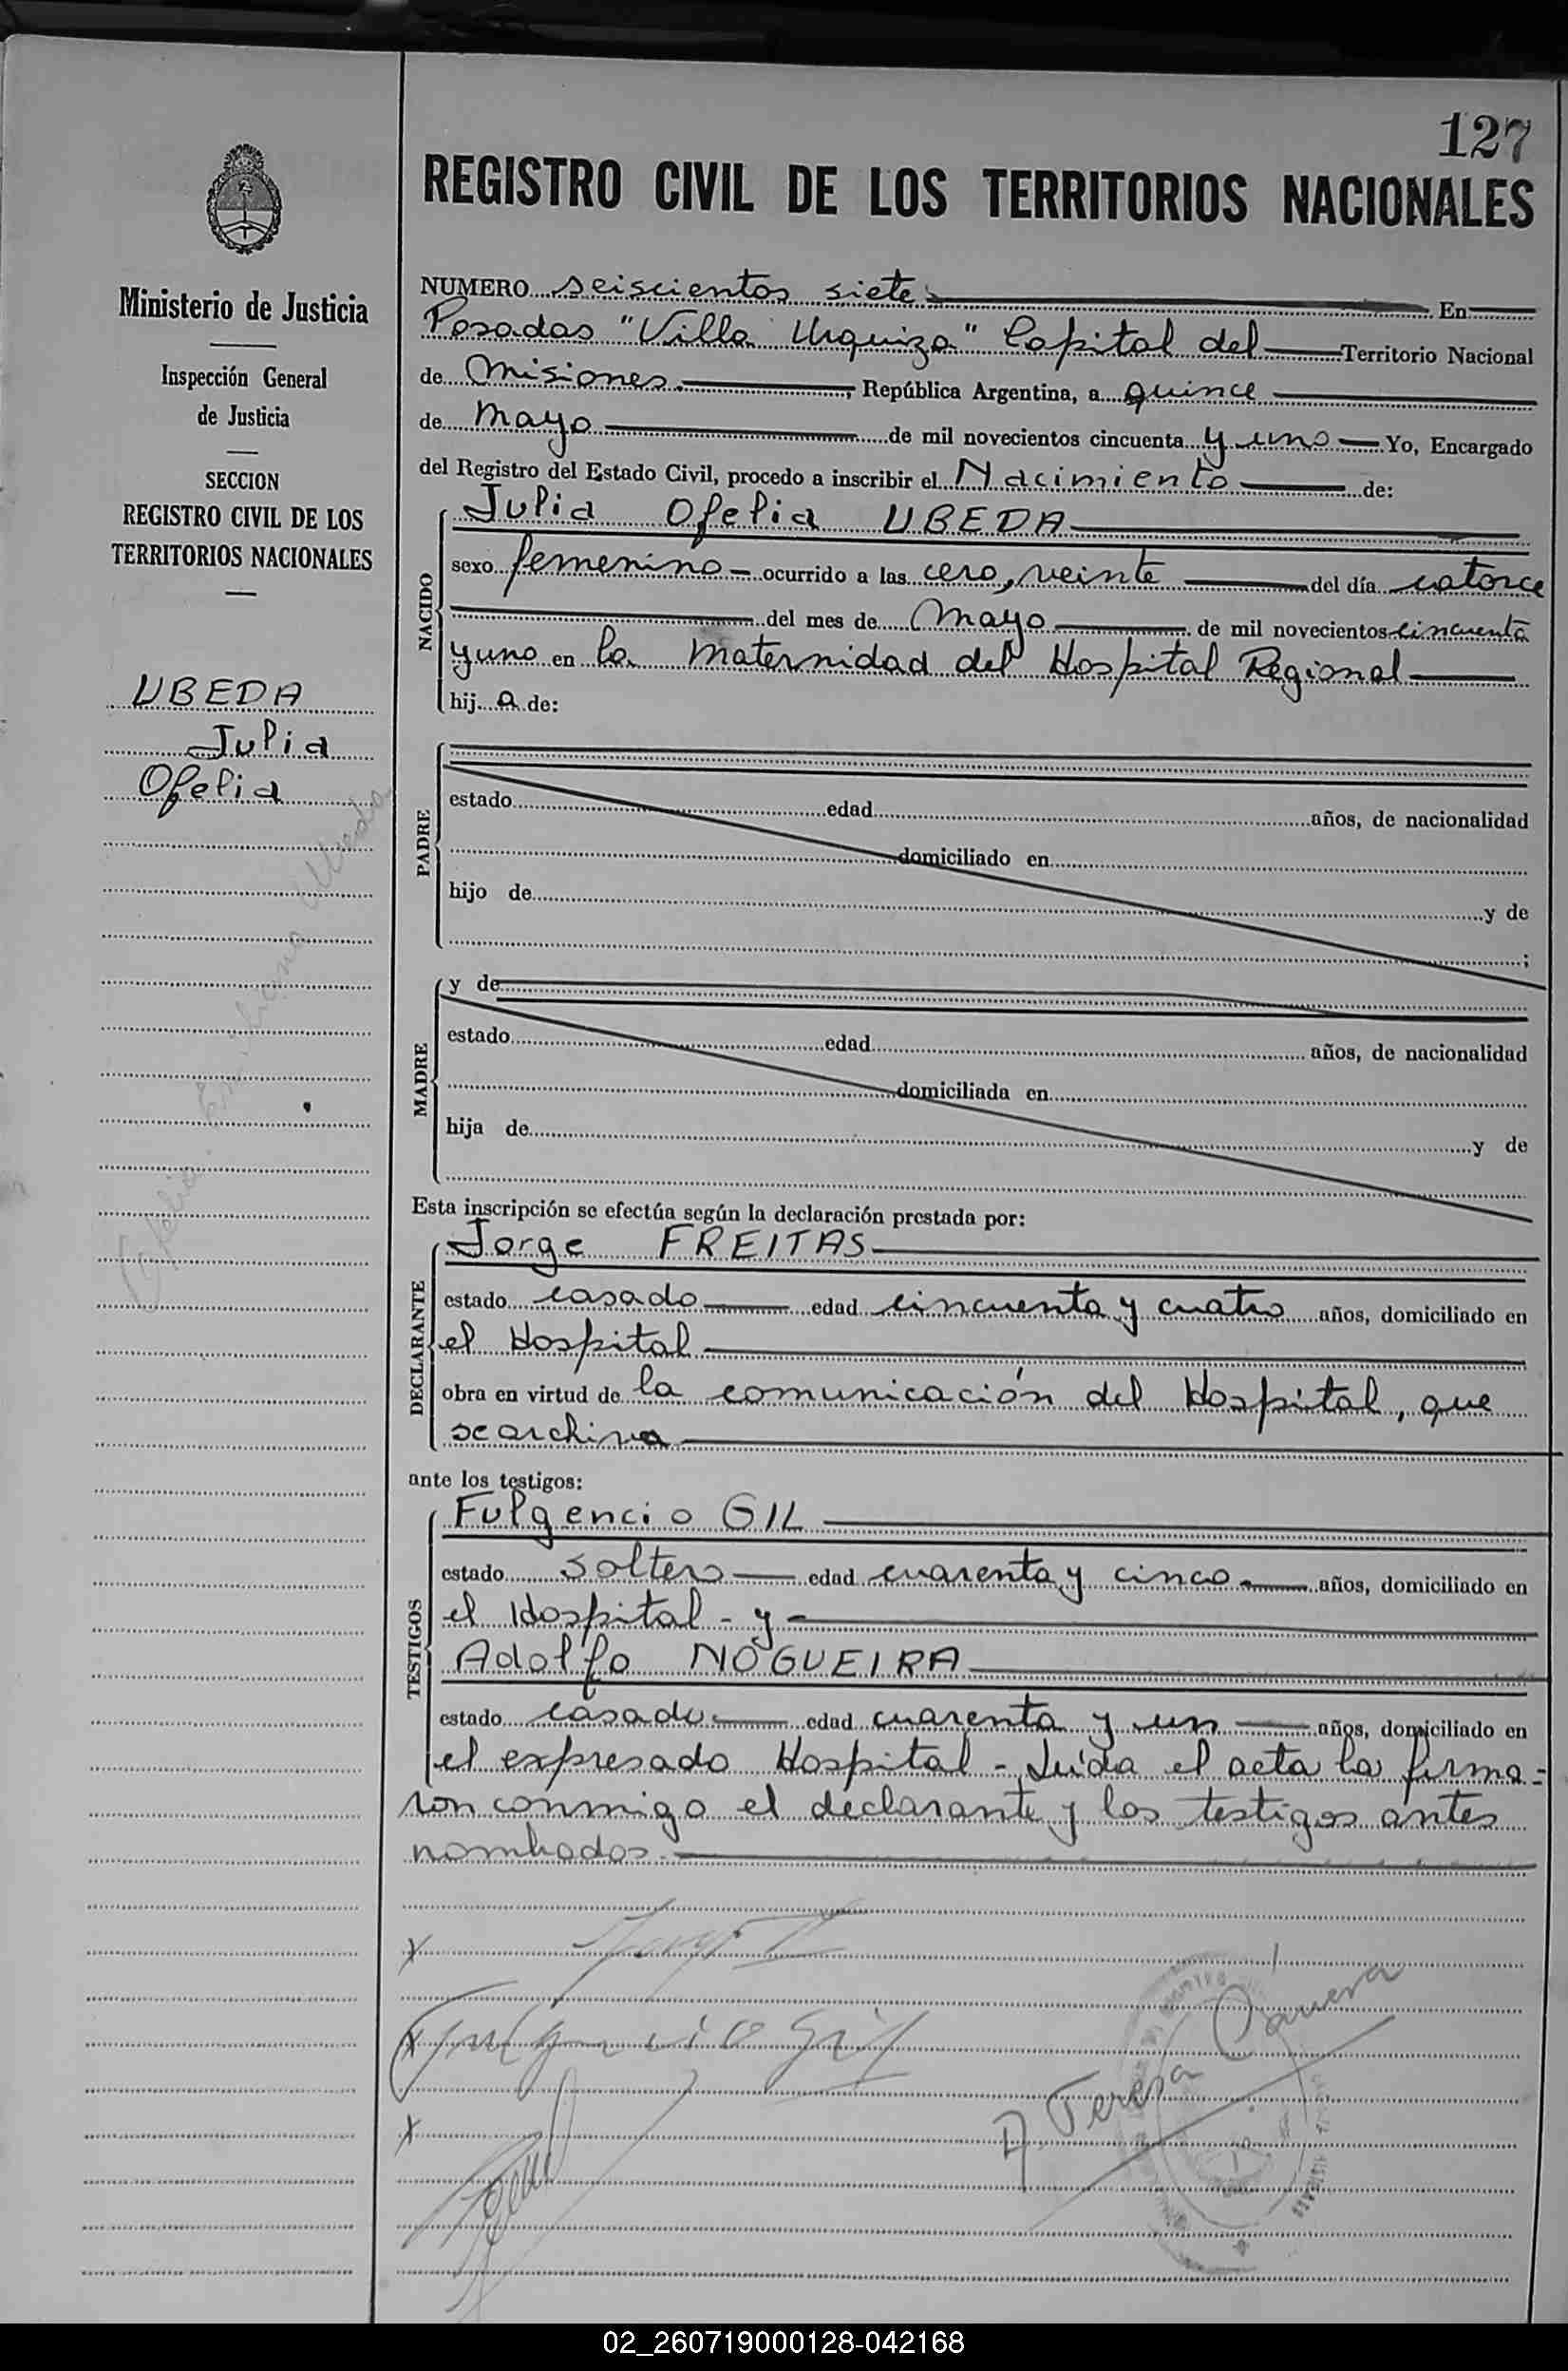 127
REGISTRO CIVIL DE LOS TERRITORIOS NACIONALES
Ministerio de Justicia
Inspección General
de Justicia
SECCION
REGISTRO CIVIL DE LOS
TERRITORIOS NACIONALES
UBEDA
Julia
Ofelia
NUMERO seiscientos siete En
Posadas "Villa Urquiza" Capital del Territorio Nacional
de Misiones, República Argentina, a quince
de Mayo de mil novecientos cincuenta y uno Yo, Encargado
del Registro del Estado Civil, procedo a inscribir el Nacimiento de:
NACIDO
Julia Ofelia UBEDA
sexo femenino ocurrido a las cero, veinte del día catorce
del mes de Mayo de mil novecientos cincuenta
y uno en la Maternidad del Hospital Regional
hij a de:
PADRE
estado edad años, de nacionalidad
domiciliado en
hijo de y de
;
MADRE
y de
estado edad años, de nacionalidad
domiciliada en
hija de y de
Esta inscripción se efectúa según la declaración prestada por:
DECLARANTE
Jorge FREITAS
estado casado edad cincuenta y cuatro años, domiciliado en
el Hospital
obra en virtud de la comunicación del Hospital, que
se archiva
ante los testigos:
TESTIGOS
Fulgencio GIL
estado soltero edad cuarenta y cinco años, domiciliado en
el Hospital - y -
Adolfo NOGUEIRA
estado casado edad cuarenta y un años, domiciliado en
el expresado Hospital - Leída el acta la firma=
ron conmigo el declarante y los testigos antes
nombrados.
x
x Fulgencio Gil
x
Teresa
02_260719000128-042168